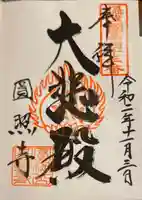 奉拝
令和二年十一月三日
大悲殿
圓照寺